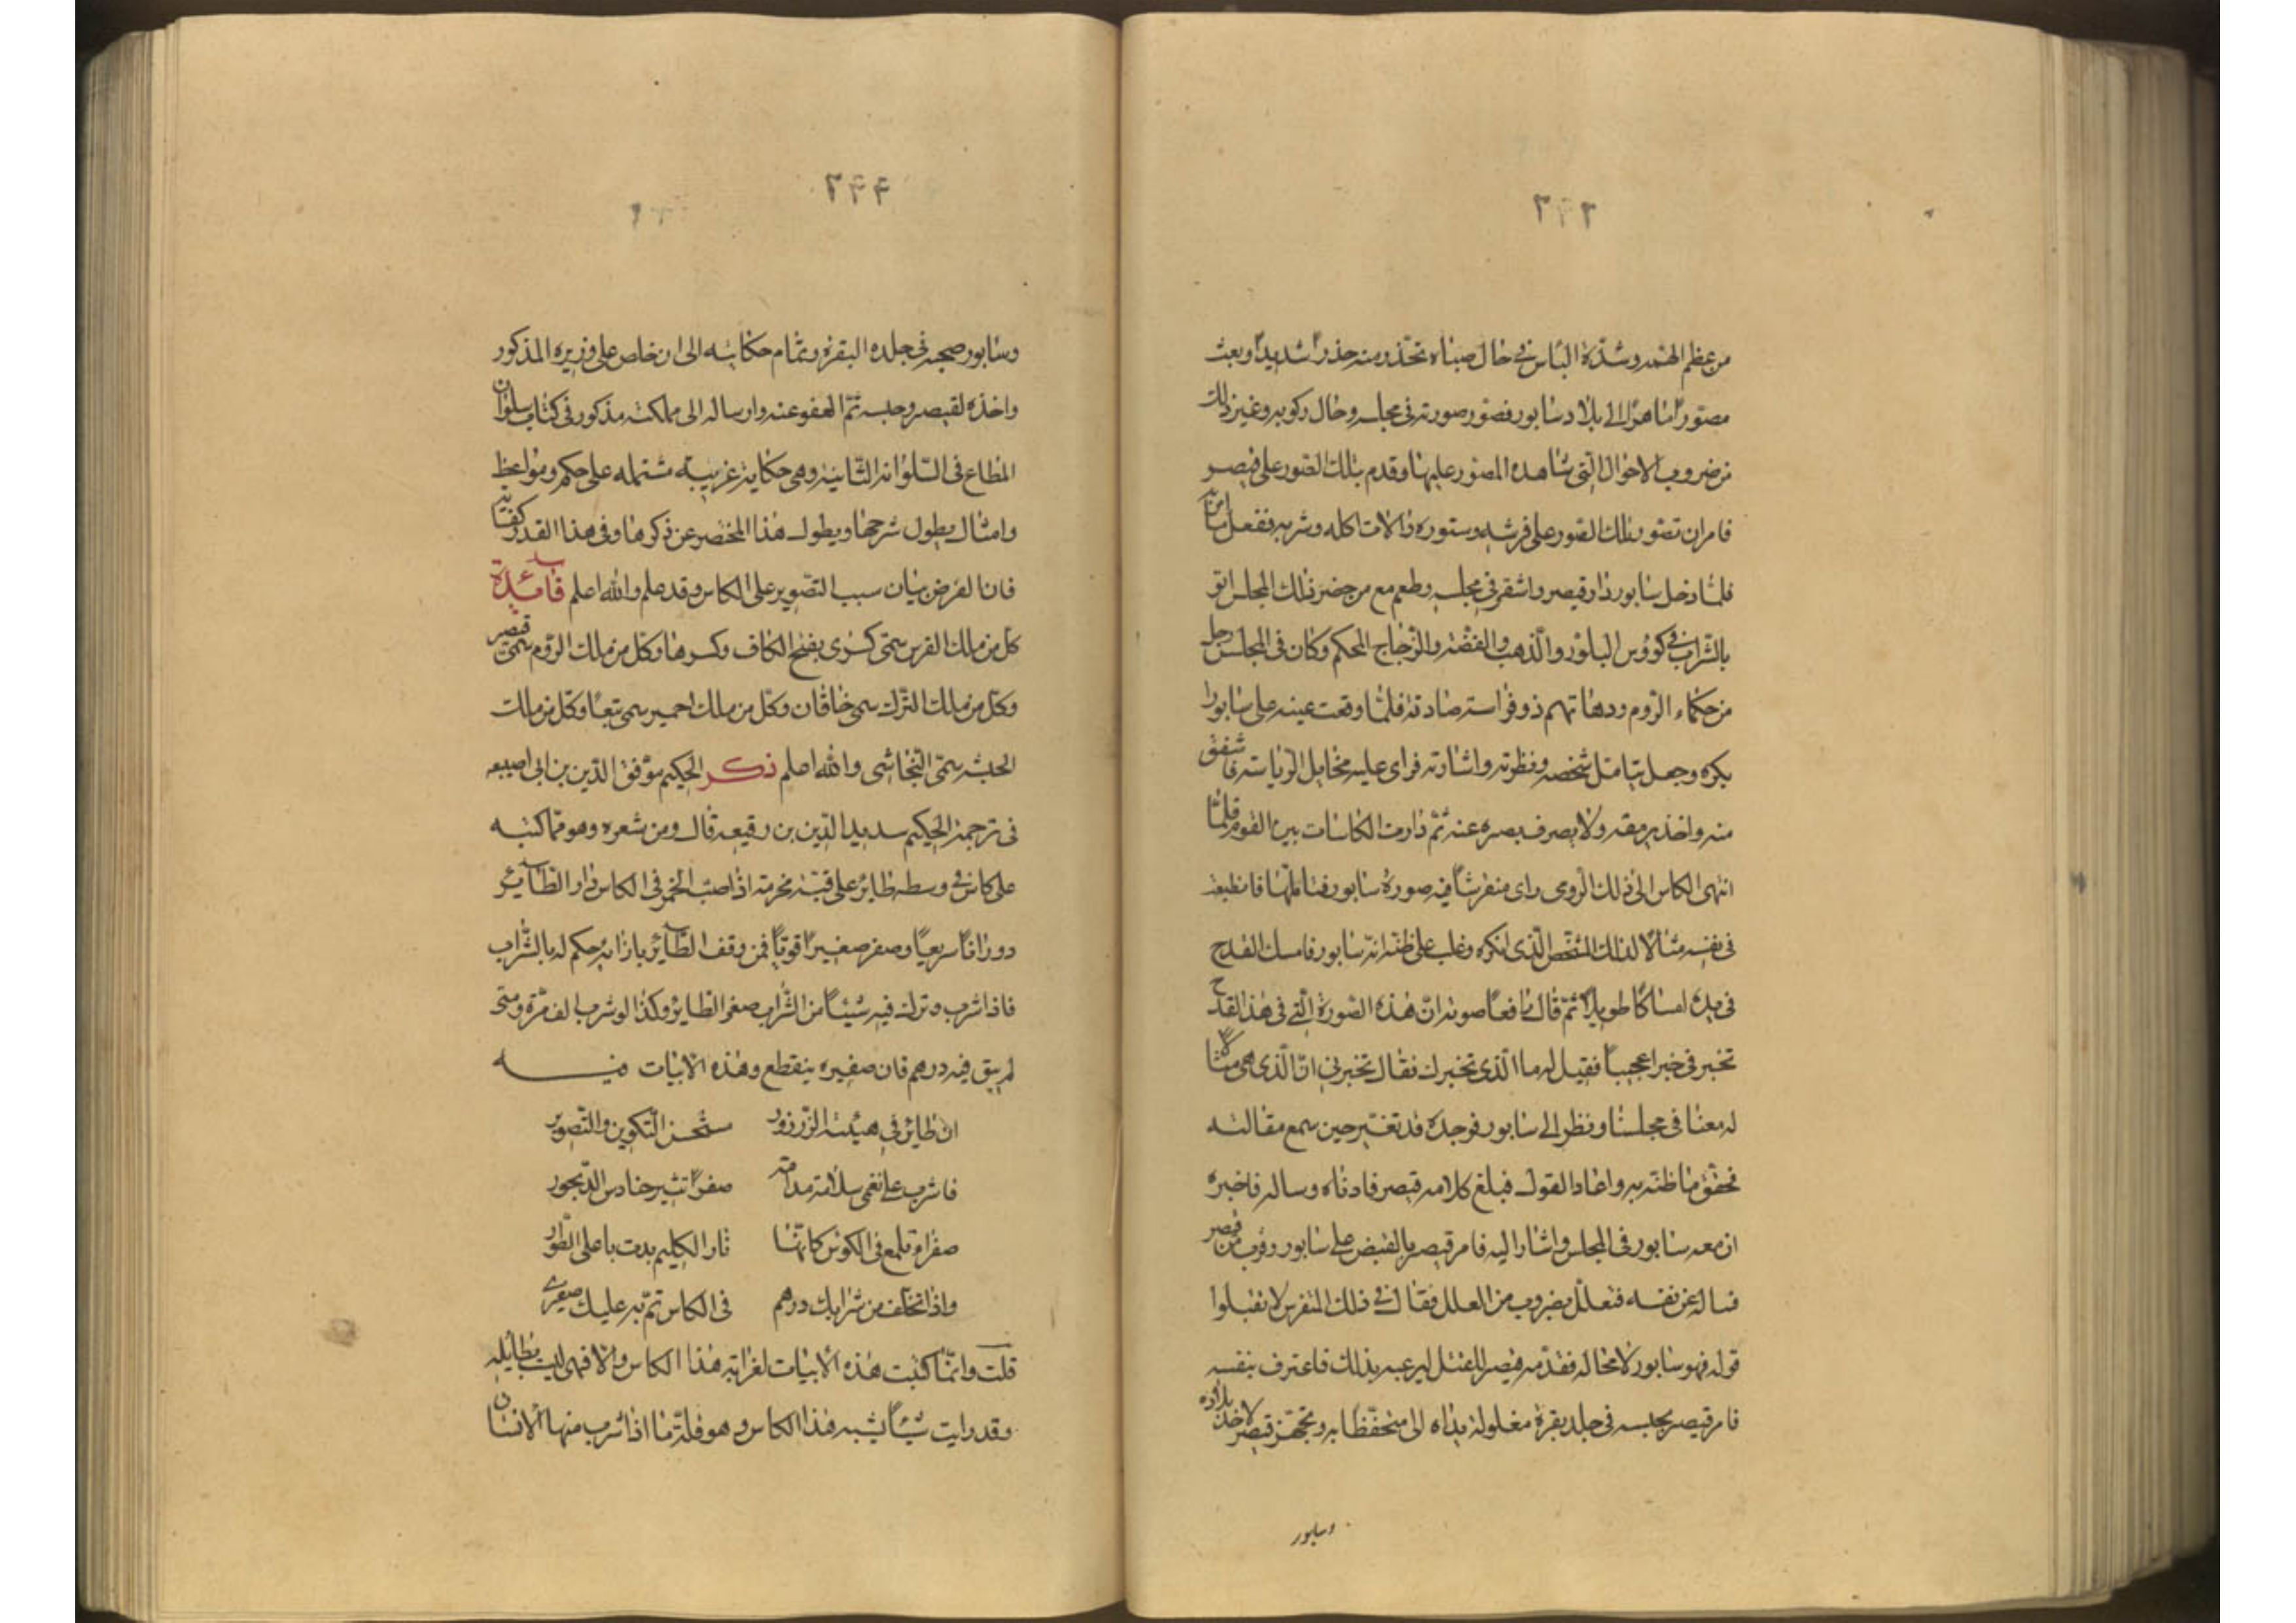 من عظم الهمة وشدة الباس فى حال صباه تحذر منه حذرا شديدا وبعث
مصورا ماهرا الى بلاد سابور فصور صورته فى مجلسه وحال ركوبه وغير ذلك
من ضروب الاحوال التى شاهده المصور عليها وقدم بتلك الصور على قيصر
فامر ان تصور تلك الصور على فرشه وستوره والات اكله وشربه ففعل
فلما دخل سابور دار قيصر واستقر فى مجلسه وطعم مع من حضر ذلك المجلس اتو
بالشراب فى كووس البلور والذهب والفضة والزجاج المحكم وكان فى المجلس رجل
من حكماء الروم ودهاتهم ذو فراسة صادقة فلما وقعت عينه على سابور
بكره وجعل يتامل شخصه ونظرته واشارته فراى عليه مخايل الرياسة فاشفق
منه واخذ يرمقه ولا يصرف بصره عنه ثم دارت الكاسات بين القوم فلما
انتهى الكاس الى ذلك الرومى راى منقرشا فيه صورة سابور فتاملها فانطبعت
فى نفسه مثالا لذلك الشخص الذى انكره وغلب على ظنه انه سابور فامسك القدح
فى يده امساكا طويلا ثم قال رافعا صوته ان هذه الصورة التى فى هذا القدح
تخبرنى خبرا عجيبا فقيل له ما الذى تخبرك فقال تخبرنى ان الذى هى مثال
له معنا فى مجلسنا ونظر الى سابور فوجده قد تغير حين سمع مقالته
فحقق ما ظنه به واعاد القول فبلغ كلامه قيصر فادناه وساله فاخبره
ان معه سابور فى المجلس واشار اليه فامر قيصر بالقبض على سابور وقرب من قيصر
فساله عن نفسه فتعلل بضروب من العلل فقال فى ذلك المتفرس لا تقبلوا
قوله فهو سابور لا محاله فقدمه قيصر للقتل ليرعبه بذلك فاعترف بنفسه
فامر قيصر بحبسه فى جلد بقرة مغلولة يداه الى متحفظا به وتجهز قيصر لاخذ بلاده
وسابور
٢٩٩
وسابور صحبه فى جلده البقرة وتمام حكايته الى ان خلص على وزيره المذكور
واخذه لقيصر وحبسه ثم العفو عنه وارساله الى مملكته مذكور فى كتاب سلوان
المطاع فى السلوانه الثانية وهى حكاية غريبة مشتمله على حكم ومواعظ
وامثال يطول شرحها ويطول هذا المختصر عن ذكرها وفى هذا القدر كفاية
فان الغرض بيان سبب التصوير على الكاس وقد علم والله اعلم فائدة
كل من ملك الفرس سمى كسرى بفتح الكاف وكسرها وكل من ملك الروم سمى قيصر
وكل من ملك الترك سمى خاقان وكل من ملك احمير سمى تبعا وكل من ملك
الحبشه سمى النجاشى والله اعلم ذكر الحكيم موفق الدين بن ابى اصيبعه
فى ترجمة الحكيم سديد الدين بن رقيعه قال ومن شعره وهو مما كتبه
على كاس فى وسطه طاير على قبة مخرمة اذا صب الخمر فى الكاس دار الطاير
دورانا سريعا وصفر صفيرا قويا فمن وقف الطاير بازايه حكم له بالشراب
فاذا شرب وترك فيه شيئا من الشراب صفر الطاير وكذا لو شرب الف مرة ومتى
لم يبق فيه درهم فان صفيره ينقطع وهذه الابيات فيه
ان طاير فى هيئة الزرزور مستحسن التكوين والتصوير
فاشرب على نغمى سلافة مدامة صفرا تثير حنادس الديجور
صفراء تلمع فى الكوس كانها نار الكليم بدت باعلى الطور
واذا تخلف من شرابك درهم فى الكاس تم به عليك صفيرى
قلت وانما كتبت هذه الابيات لغرابة هذا الكاس والا فهى ليست بطايله
وقد رايت شيئا يشبه هذا الكاس وهو قلة ما اذا شرب منها الانسان